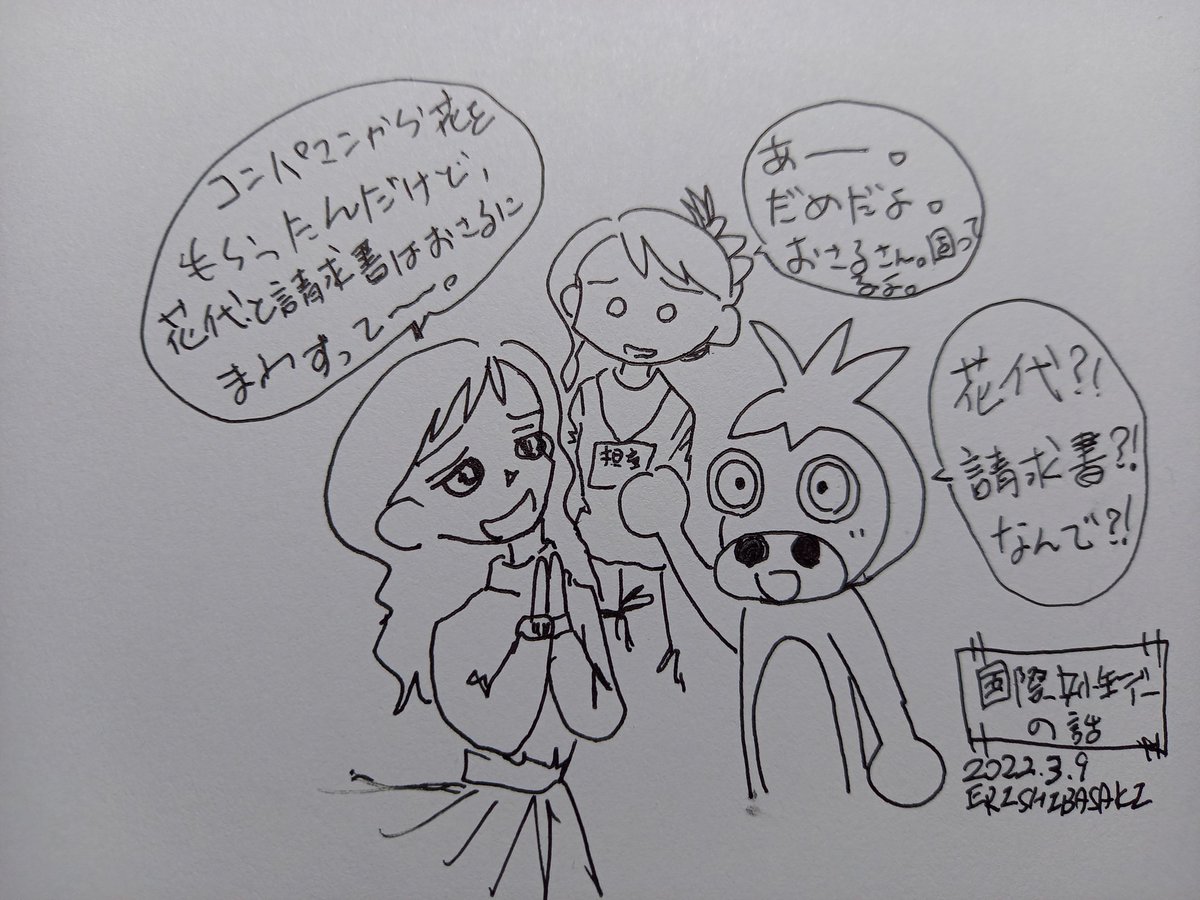 コンパマンから花を
もらったんだけど,
花代と請求書はおさるに
まわすって〜。
あー。
だめだよ。
おさるさん。困って
るよ。
花代?!
請求書?!
なんで?!
担当
国際女性デー
の話
2022.3.9
ERISHIBASAKI